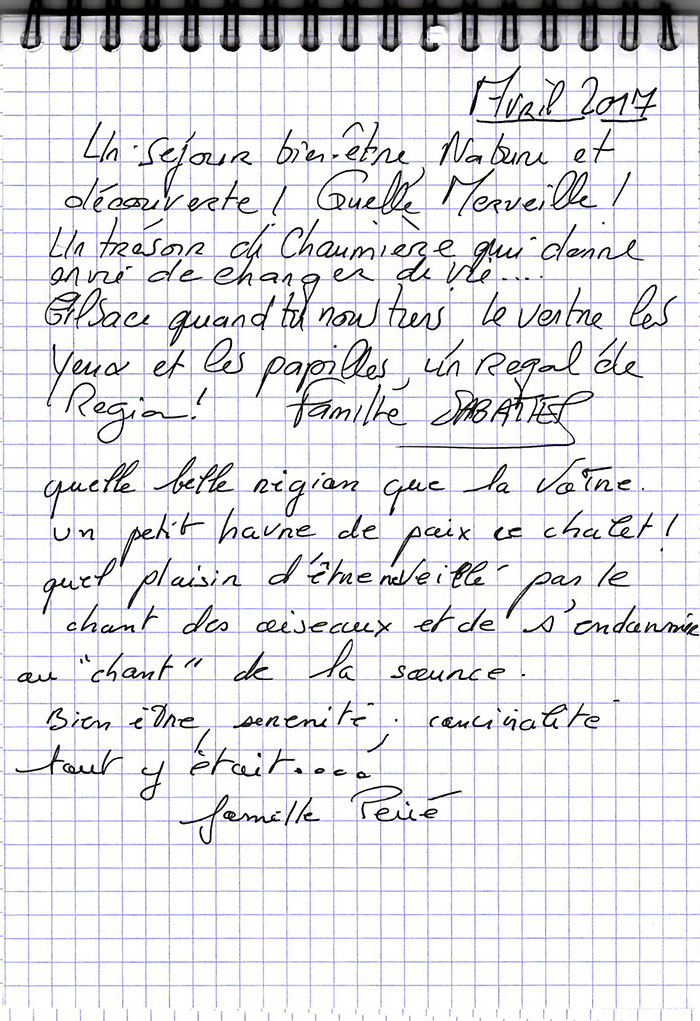 Avril 2017
Un séjour bien-être, Nature et
découverte ! Quelle Merveille !
Un trésor de Chaumière qui donne
envie de changer de vie....
Alsace quand tu nous tiens le ventre les
yeux et les papilles, un Regal de
Region ! Famille SABATIER
quelle belle région que la vôtre.
un petit havre de paix ce chalet !
quel plaisir d'être réveillé par le
chant des oiseaux et de s'endormir
au "chant" de la source.
Bien être, serenité, convivialité
tout y était....!
famille